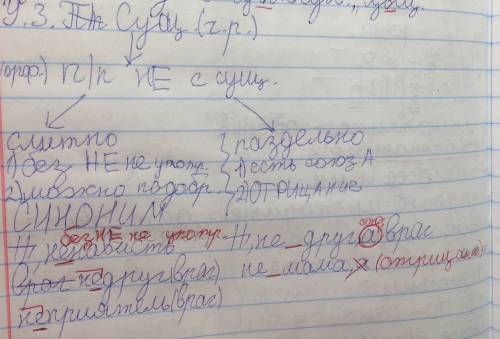 У.З. Сущ. (ч.р.)
(орф.) п/п НЕ с сущ.
слитно
1) без НЕ не употр.
2) можно подобр.
СИНОНИМ
раздельно
1) есть союз А
2) ОТРИЦАНИЕ
без НЕ не употр.
Н, ненависть
враг недруг (враг)
неприятель (враг)
союз
Н, не_друг, а враг
не_мама, х (отрицание)